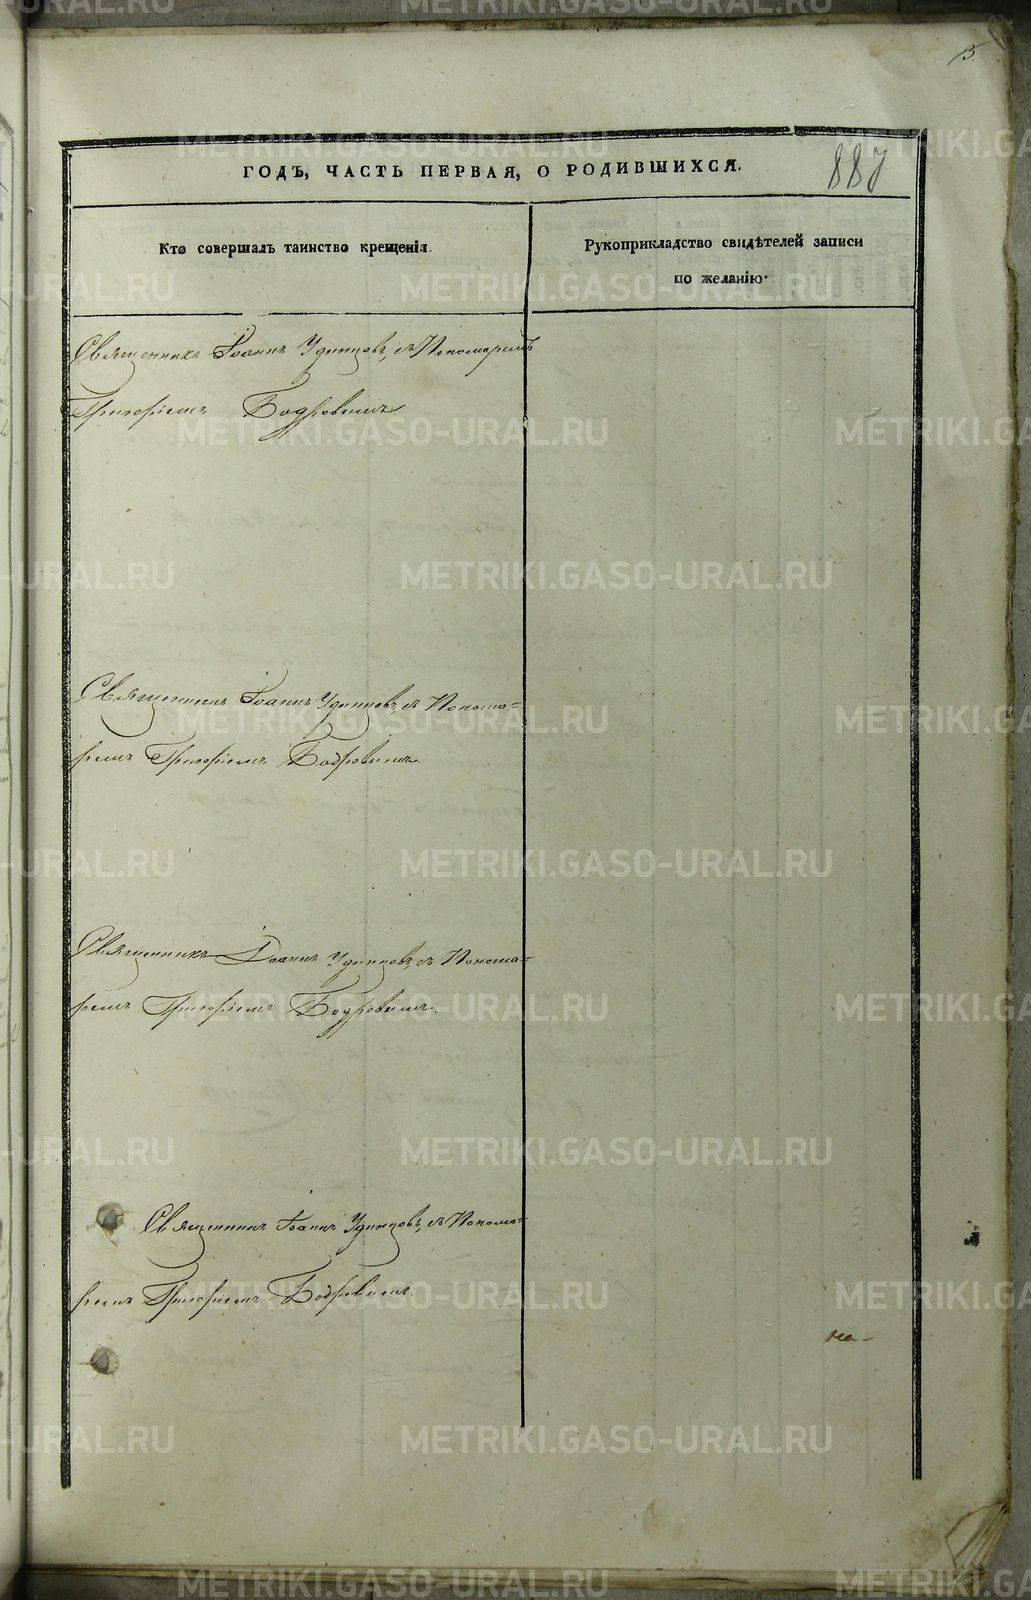 13.
887
ГОДЪ, ЧАСТЬ ПЕРВАЯ, О РОДИВШИХСЯ.
Кто совершалъ таинство крещенія.
Рукоприкладство свидѣтелей записи
по желанію.
Священникъ Іоаннъ Удинцовъ, съ Пономаремъ
Григоріемъ Бодровымъ
Священникъ Іоаннъ Удинцовъ, съ Понома-
ремъ Григоріемъ Бодровымъ
Священникъ Іоаннъ Удинцовъ, съ Понома-
ремъ Григоріемъ Бодровымъ.
Священникъ Іоаннъ Удинцовъ, съ Понома-
ремъ Григоріемъ Бодровымъ.
на-
METRIKI.GASO-URAL.RU